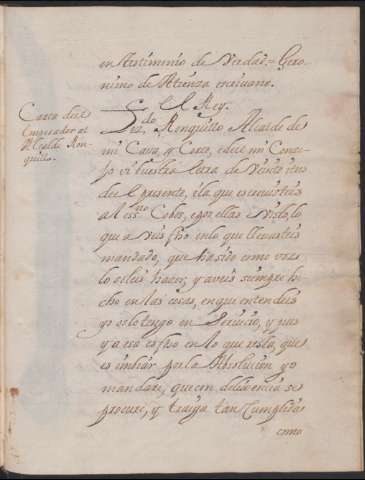 en testimonio de Verdad = Gero-
nimo de Atienza escrivano.
Carta del
Emperador al
Alcalde Ron-
quillo.
El Rey.
Ldo. Ronquillo Alcalde de
mi Casa, y Corte, e del mi Conse-
jo vi vuestra Carta de Veinte, y tres
del presente, e la que escrevistes
al ss.no Cobos, e por ellas e visto, lo
que avéis fho en lo que llevasteis
mandado, que ha sido como vos
lo soleis hacer; y aveis siempre he-
cho en las cosas, en que entendeis
yo os lo tengo en Servicio, y pues
ya eso es fho en lo que resta, que
es imbiar por la Absolucion yo
mandaré, que con deligencia se
procure, y traiga tan Cumplida
como